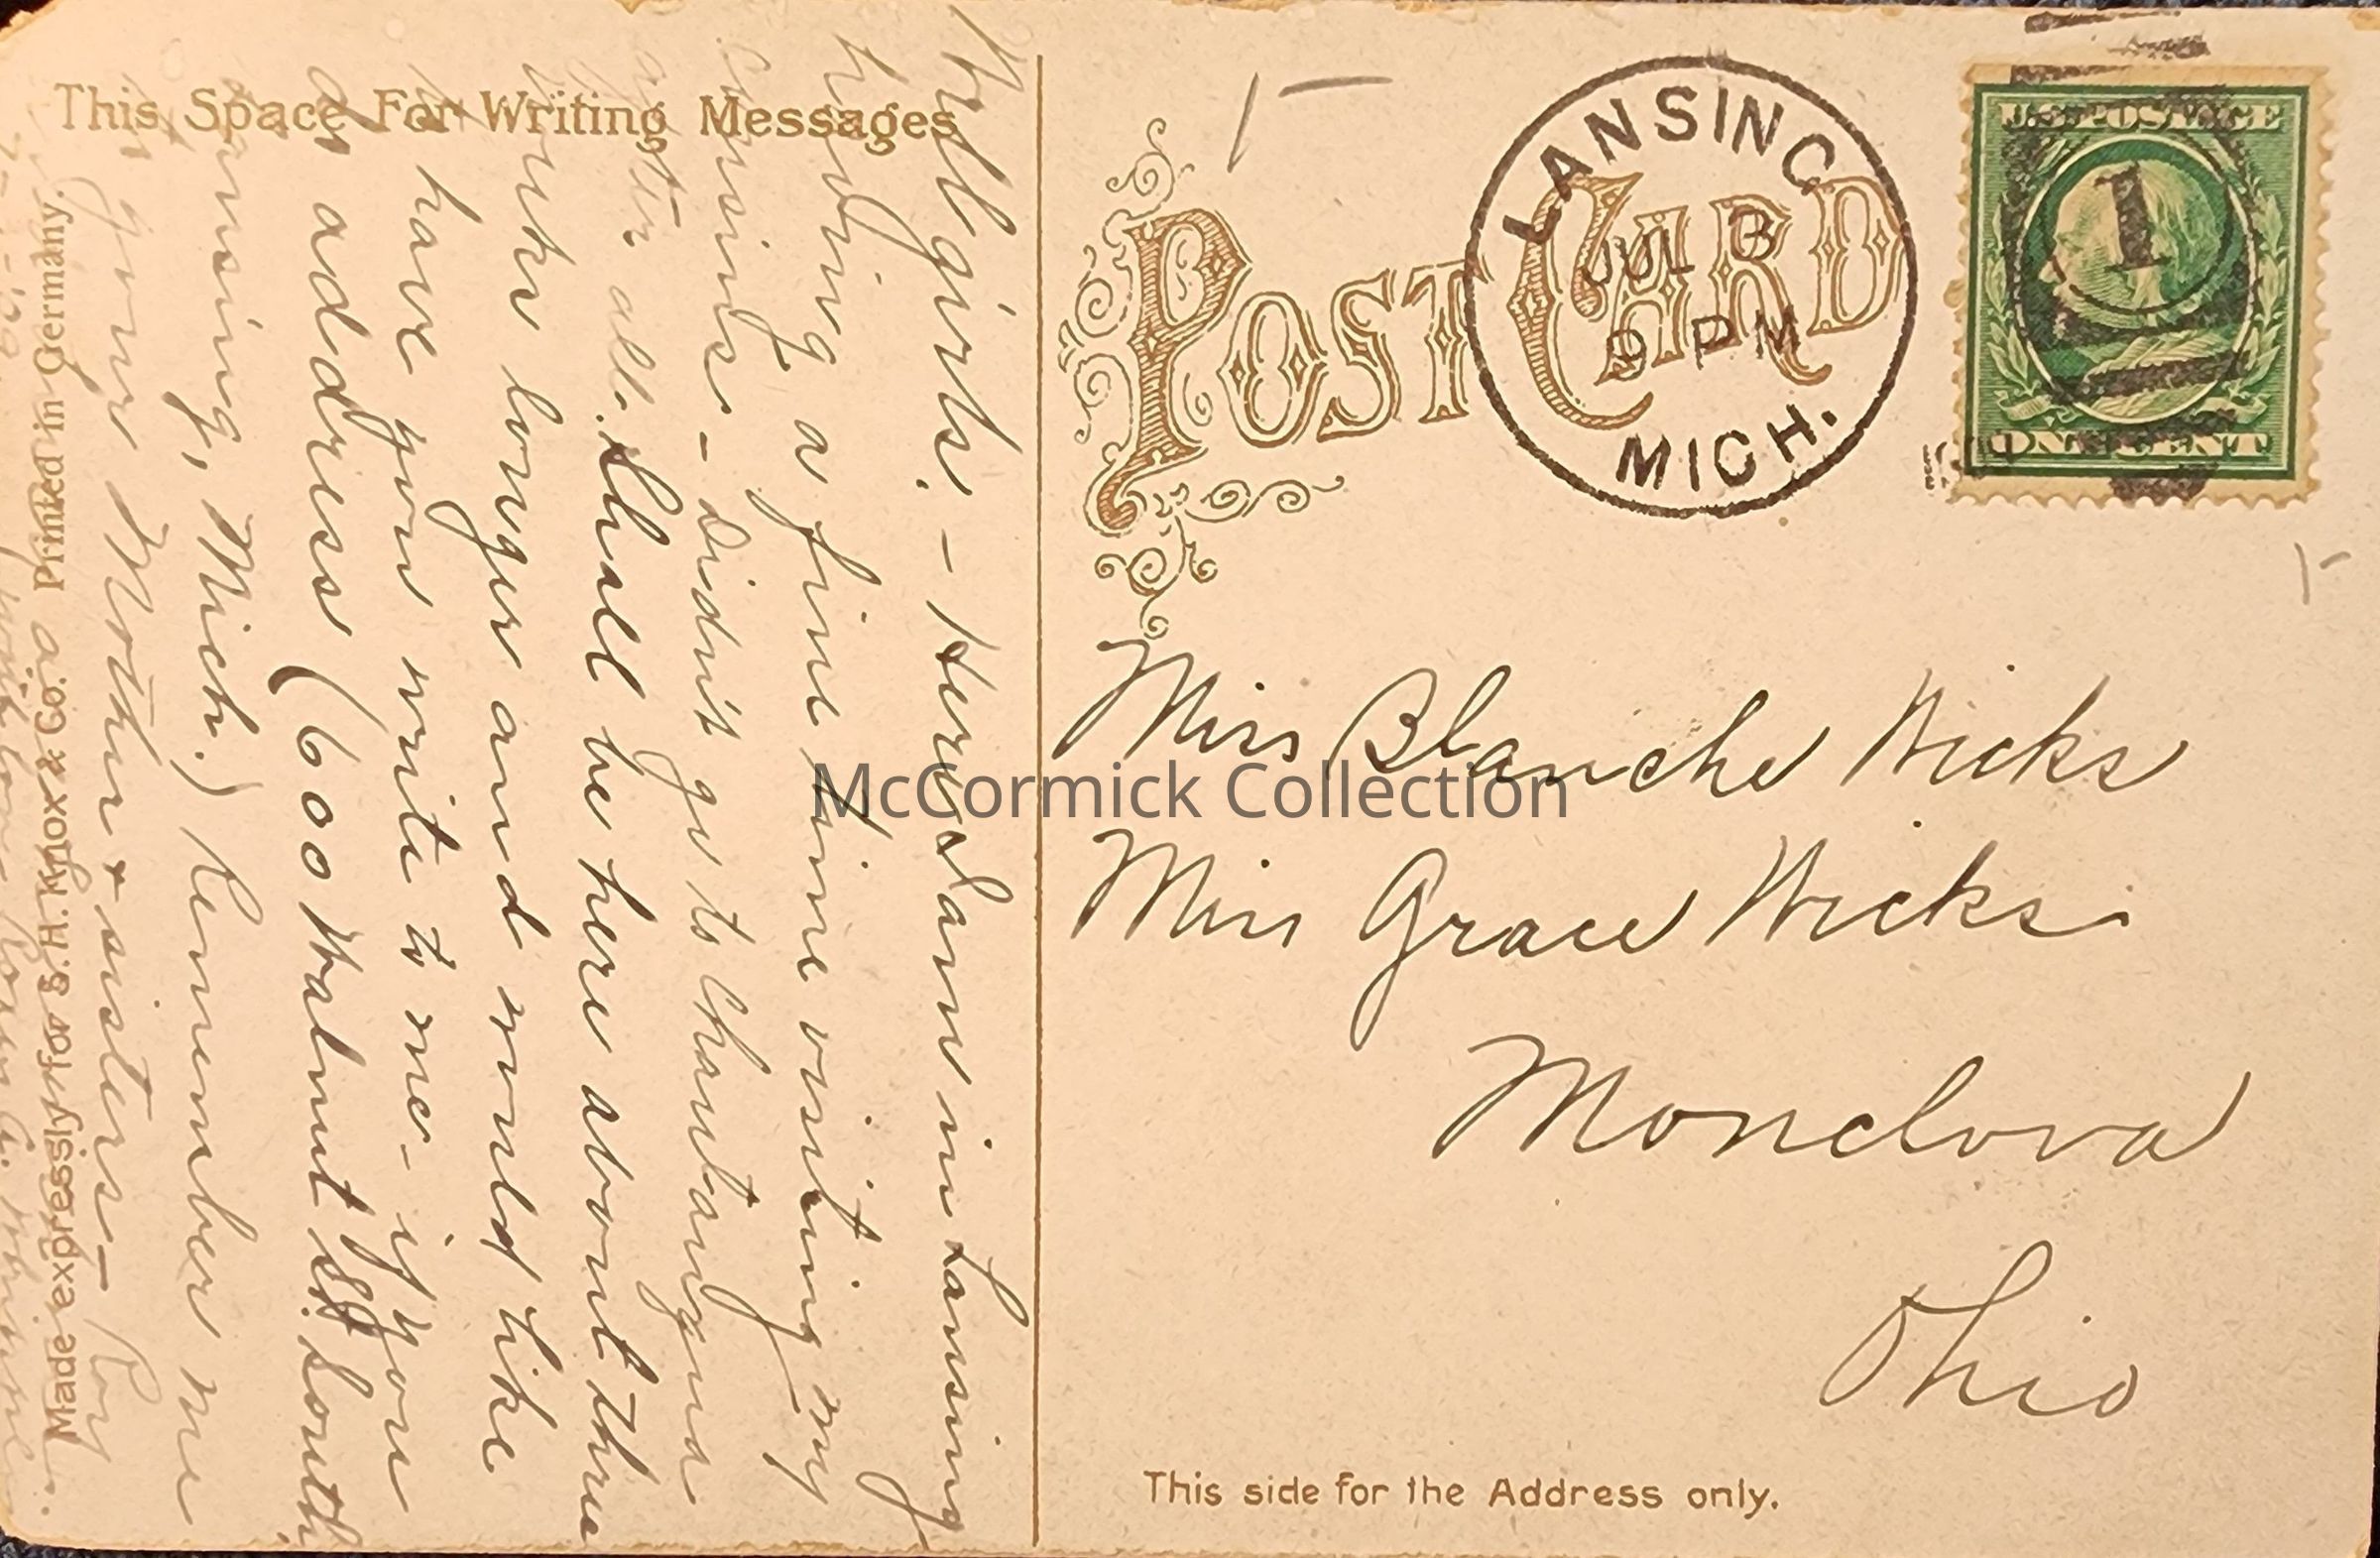 This Space For Writing Messages
Well girls. - Here I am in Lansing
having a fine time visiting my
cousins. - Didn't go to Chautauqua
after all. Shall be here about three
weeks longer and would like
to have you write to me - if you
address (600 Walnut St. South
Lansing, Mich.) Remember me
to your Mother & sisters -
Made expressly for S. H. Knox & Co. Printed in Germany.
POST CARD
LANSING
JUL 3
9 PM
MICH.
U.S. POSTAGE
1
ONE CENT
Miss Blanche Wicks
Miss Grace Wicks
Monclova
Ohio
This side for the Address only.
McCormick Collection